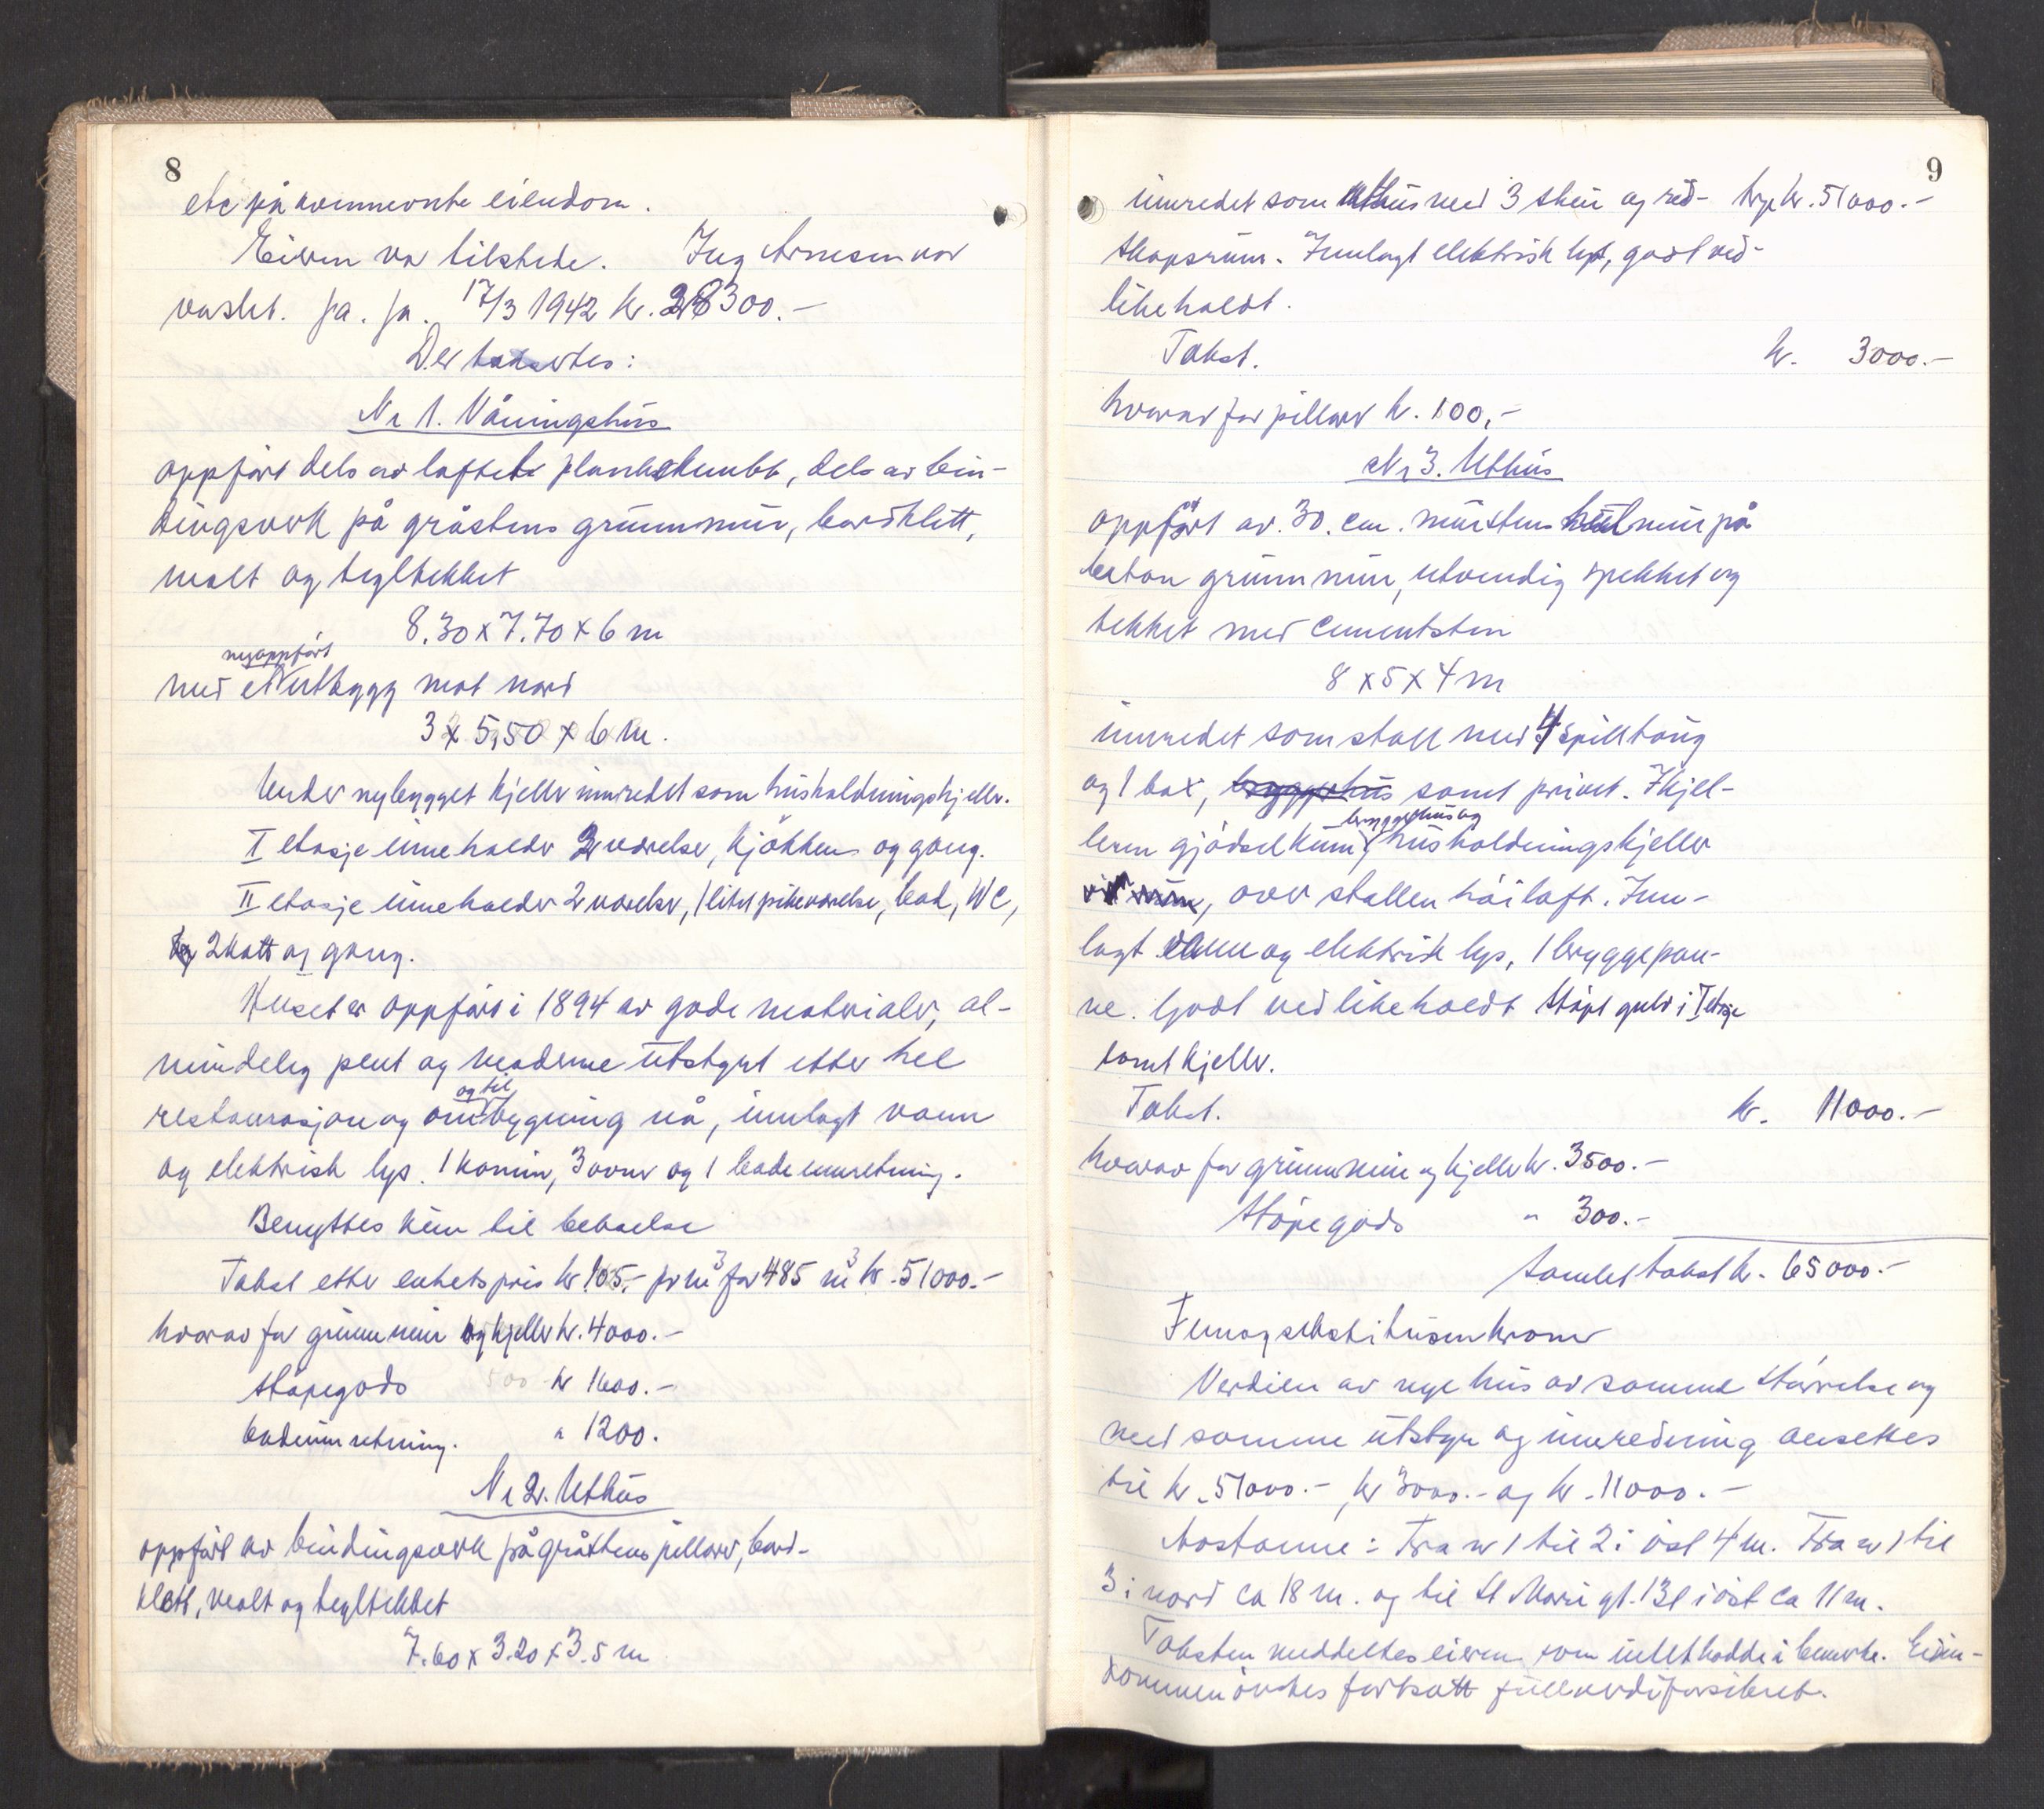 8
etc på ovennevnte eiendom.
Eieren var tilstede. Ing Arnesen var
varslet. Ja. fa. 17/3 1942 kr. 28300.-
Der taksertes:
Nr 1. Våningshus
oppført dels av laftet plankekubb, dels av bin-
dingsverk på gråstens grunnmur, bordklett,
malt og tegltekket
8.30 x 7.70 x 6 m
nyoppført
med et utbygg mot nord
3 x 5,50 x 6 m.
Under nybygget kjeller innredet som husholdningskjeller.
I etasje inneholder 2 værelser, kjøkken og gang.
II etasje inneholder 2 værelser, 1 litet pikeværelse, bad, WC,
2 kott og gang.
Huset er oppført i 1894 av gode materialer, al-
mindelig pent og moderne utstyrt etter hel
og til
restaurasjon og ombygning nå, innlagt vann
og elektrisk lys. 1 kamin, 3 ovner og 1 badeinnretning.
Benyttes kun til beboelse
Takst etter enhetspris kr 105,- pr m3 for 485 m3 kr. 51000.-
hvorav for grunnmur og kjeller kr. 4000.-
støpegods kr 1600.-
badeinnretning. " 1200.
Nr 2. Uthus
oppført av bindingsverk på gråstens pillarer, bord-
klett, malt og tegltekket
7.60 x 3.20 x 3.5 m
9
innredet som uthus med 3 skur og red- kr. 51000.-
skapsrum. Innlagt elektrisk lys, godt ved-
likeholdt.
Takst. kr. 3000.-
hvorav for pillarer kr. 100,-
Nr 3. Uthus
oppført av 30. cm. murstens hulmur på
betong grunnmur, utvendig spekket og
tekket med cementsten
8 x 5 x 4 m
innredet som stall med 4 spilltaug
og 1 box, bryggerhus samt privet. I kjel-
bryggerhus og
leren gjødselkum, husholdningskjeller
, over stallen høiloft. Inn-
lagt vann og elektrisk lys, 1 bryggepan-
ne. Godt vedlikeholdt Støpt gulv i I etasje
samt kjeller.
Takst. kr. 11000.-
hvorav for grunnmur og kjeller kr. 3500.-
Støpegods " 300.-
Samlet takst kr. 65000.-
Femogsekstitusen kroner
Verdien av nye hus av samme størrelse og
med samme utstyr og innredning ansettes
til kr. 51000.-, kr 3000.- og kr. 11000.-
Avstanne: Fra nr 1 til 2 i øst 4 m. Fra nr 1 til
3 i nord ca 18 m. og til St Mari gt. 131 i øst ca 11 m.
Taksten meddeltes eieren som intet hadde å bemerke. Eien-
dommen ønskes fortsatt fullverdiforsikret.